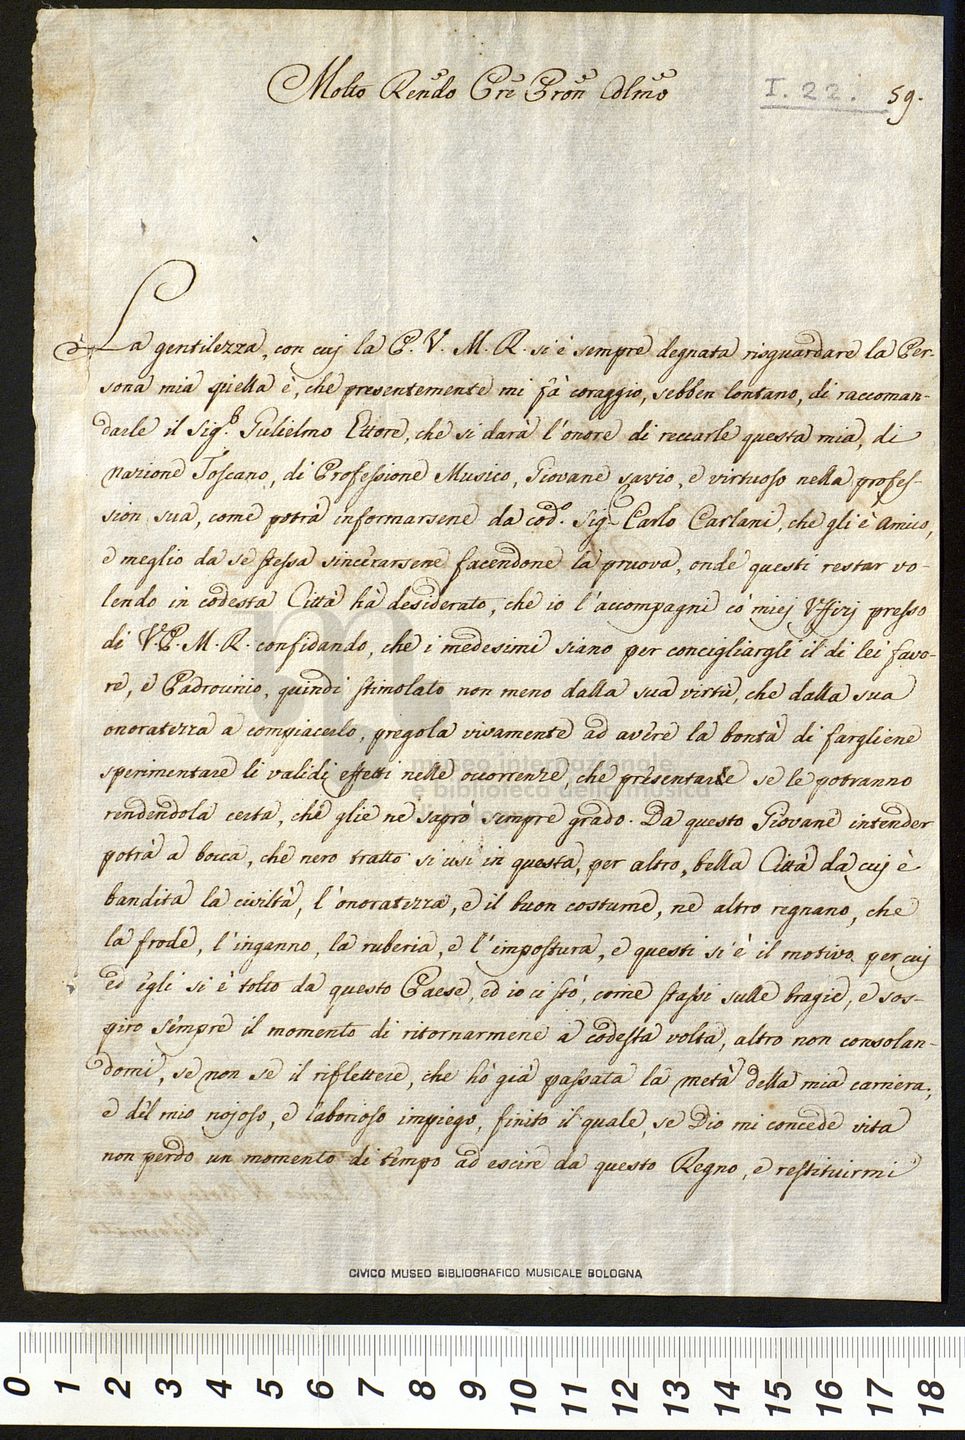 Molto Rendo Pre Pron Colmo
I. 22. 59.
La gentilezza, con cuj la P. V. M. R. si è sempre degnata risguardare la Per-
sona mia quella è, che presentemente mi fà coraggio, sebben lontano, di raccoman-
darle il Sigr. Gulielmo Ettore, che si darà l'onore di reccarle questa mia, di
nazione Toscano, di Professione Musico, Giovane savio, e virtuoso nella profes-
sion sua, come potrà informarsene da codo. Sigr. Carlo Carlani, che gli è Amico,
e meglio da se stessa sincerarsene facendone la pruova, onde questi restar vo-
lendo in codesta Città hà desiderato, che io l'accompagni co' miej Uffizj presso
di V. P. M. R. confidando, che i medesimi siano per concigliargli il di lei favo-
re, e Padrocinio, quindi stimolato non meno dalla sua virtù, che dalla sua
onoratezza a compiacerlo, pregola vivamente ad avere la bontà di fargliene
sperimentare li validi effetti nelle occorrenze, che presentarle se le potranno
rendendola certa, che gliene saprò sempre grado. Da questo Giovane intender
potrà a bocca, che nero tratto si usi in questa, per altro, bella Città da cuj è
bandita la civiltà, l'onoratezza, e il buon costume, ne altro regnano, che
la frode, l'inganno, la ruberia, e l'impostura, e questi si è il motivo per cuj
ed egli si è tolto da questo Paese, ed io ci stò, come stassi sulle bragie, e sos-
piro sempre il momento di ritornarmene a codesta volta, altro non consolan-
domi, se non se il riflettere, che hò già passata la metà della mia carriera,
e del mio nojoso, e laborioso impiego, finito il quale, se Dio mi concede vita
non perdo un momento di tempo ad escire da questo Regno, e restituirmi
museo internazionale
e biblioteca della musica
di bologna
CIVICO MUSEO BIBLIOGRAFICO MUSICALE BOLOGNA
0 1 2 3 4 5 6 7 8 9 10 11 12 13 14 15 16 17 18